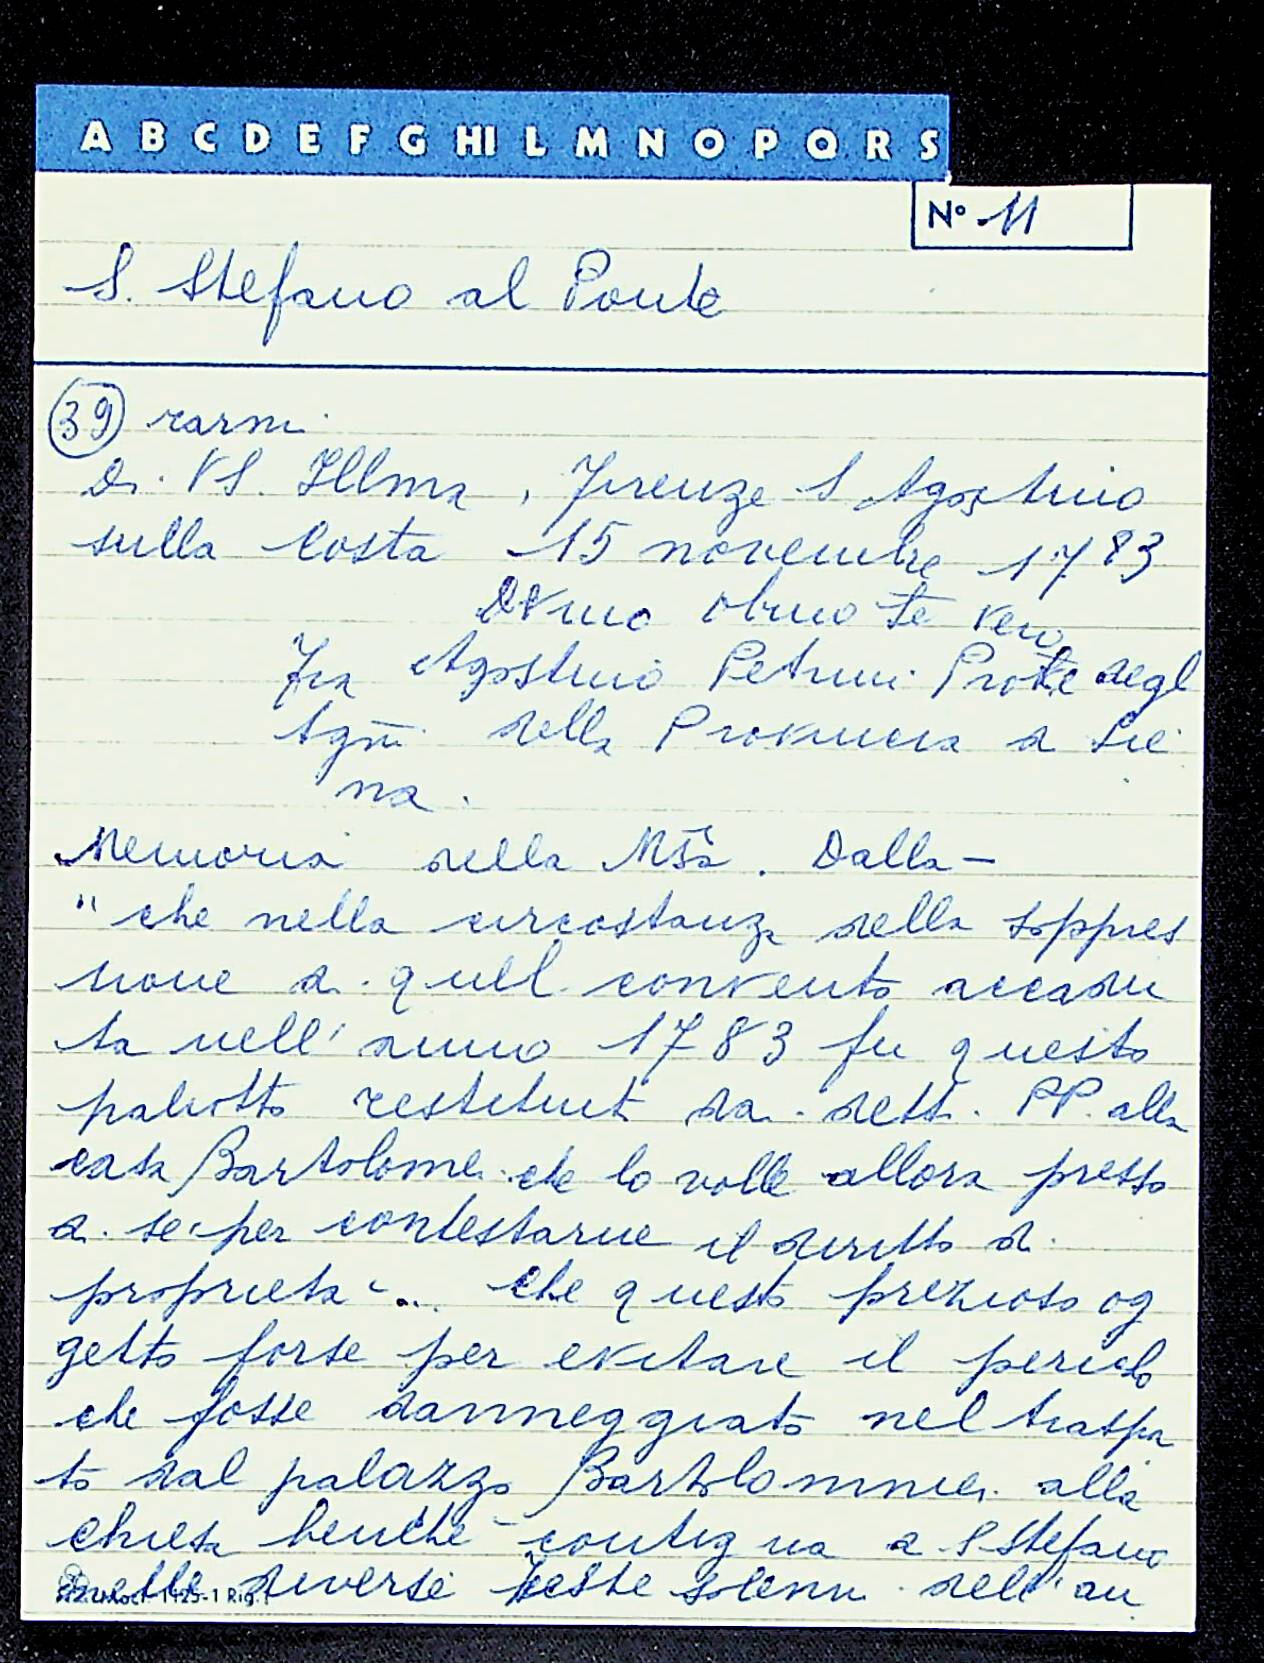 A B C D E F G HI L M N O P Q R S
N° 11
S. Stefano al Ponte
39 rarmi
Di VS. Illma, Firenze S Agostino
sulla Costa 15 novembre 1783
Devmo obmo Se vero
Fra Agostino Petrini Prote degl
Agni della Provincia di Sie
na.
Memoria della Msa. Dalla -
" che nella circostanza della soppres
sione di quell convento accadu
ta nell' anno 1783 fu questo
paliotto restituit da detti PP. alla
casa Bartolomei che lo volle allora presso
di se per contestarne il diritto di
proprietà ... che questo prezioso og
getto forse per evitare il pericolo
che fosse danneggiato nel traspor
to dal palazzo Bartolommei alla
chiesa benche contigua a S Stefano
nelle diverse feste solenni dell'an
1425-1 Rig.1